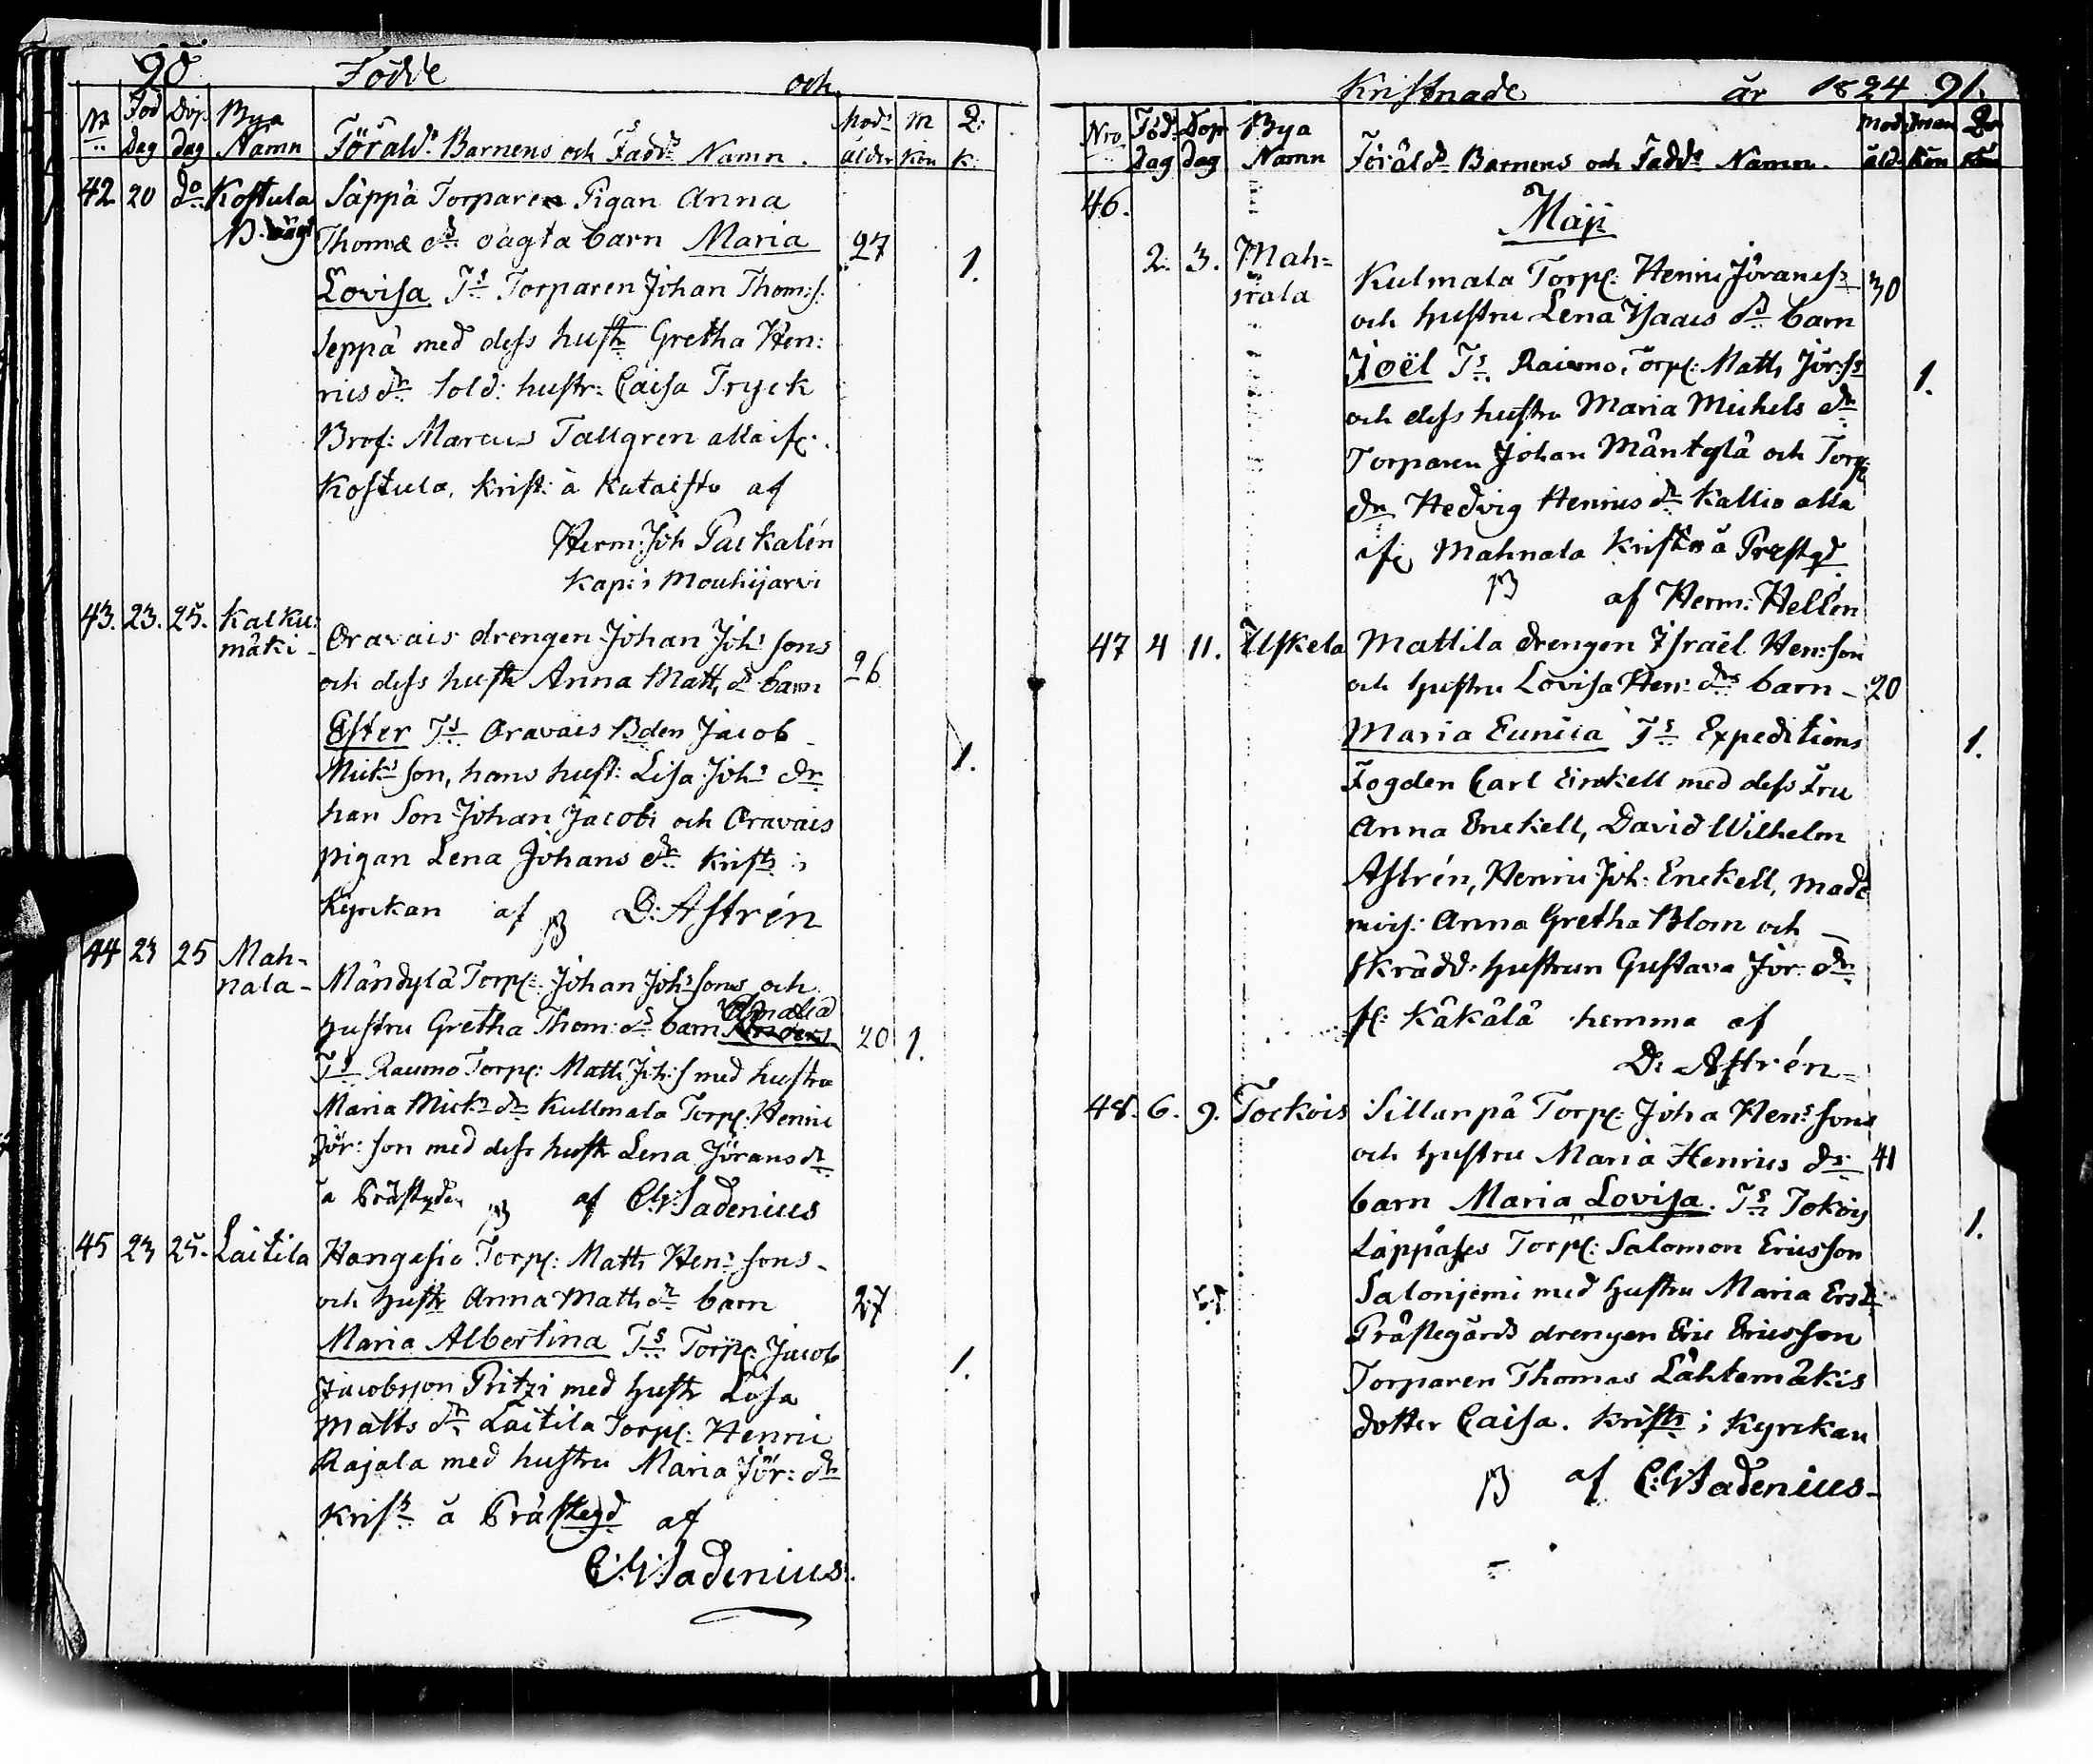 90 Födde och
Nr Föd Dag Döp dag Bya Namn Föräldr. Barnens och Fadd. Namn. Mod: ålder M Kön Q: K:
42 20 do Kostula Säppä Torparen Pigan Anna
Thomæ ds oägta barn Maria 27 1.
Lovisa Ts Torparen Johan Thom:s:
Seppä med dess hustr Gretha Hen:
rics dr Sold: hustr: Caisa Tryck
Marcus Tallgren alla ifr.
Kostula, krist: å Kutaisto af
Herm: Joh Packalén
Kap: i Mouhijärvi
43. 23. 25. Kalku:
mäki - Oravais drengen Johan Joh: sons
och dess hustr Anna Matt, dr barn 26
Ester Ts Oravais Bden Jacob
Mick: son, hans hust: Lisa Joh: dr 1.
han Son Johan Jacobs och Oravais
pigan Lena Johans dr Krist: i
Kyrckan af D: Astrén
44 23 25 Mah-
nala - Mändylä Torp: Johan Joh: sons och
Amalia
hustru Gretha Thom: ds barn Anders 20 1.
Ts Raumo Torp: Matts Joh: s med hustru
Maria Mick: dr Kullmala Torp: Henric
Jör: son med dess hustr Lena Jörans dr
å Prästgden af C:G: Sadenius
45 23 25. Laitila Hangasio Torp: Matts Hen: sons -
och hustr Anna Matts dr barn 27
Maria Albertina Ts Torp: Jacob 1.
Jacobsson Pritzi med hustr Lisa
Matts dr Laitila Torp: Henric
Rajala med hustru Maria Jör: dr
Krist: å Prästegd af
C:G: Sadenius.
Kristnade år 1824 91.
Nro. Föd. Dag Döp dag Bya Namn Föräld: Barnens och Fadd: Namn. Mod: åld: Man Kön Kön
46. Maji
2. 3. Mah=
nala Kulmala Torp: Henric Jöranss 30
och hustru Lena Isaacs ds barn
Joël Ts Raumo, Torp: Matts Jör:ss 1.
och dess hustru Maria Michels dr
Torparen Johan Mäntylä och Torp
dr Hedvig Henrics dr Kallio alla
ifr Mahnala Krist: å Prestgd
af Herm: Hellén
47 4 11. Uskela Mattila drengen Israël Hen: son
och hustru Lovisa Hen: drs barn - 20
Maria Eunicia Ts Expeditions 1.
Fogden Carl Enckell med dess Fru
Anna Enckell, David Wilhelm
Astrén, Henric Joh: Enckell, made
mois: Anna Gretha Blom och
skrädd. hustrun Gustava Jör: dr
fr: Käkälä hemma af
D: Astrén
48. 6. 9. Tockois Sillanpä Torp: Joha Hen: sons
och hustru Maria Henrics ds 41
barn Maria Lovisa. Ts Tokois 1.
Läppäses Torp: Salomon Ericsson
Salonjemi med hustru Maria Ers d
Prästegårds drengen Eric Ericsson
Torparen Thomas Lähtemäkis
dotter Caisa. Krist: i Kyrckan
af C:G: Sadenius -